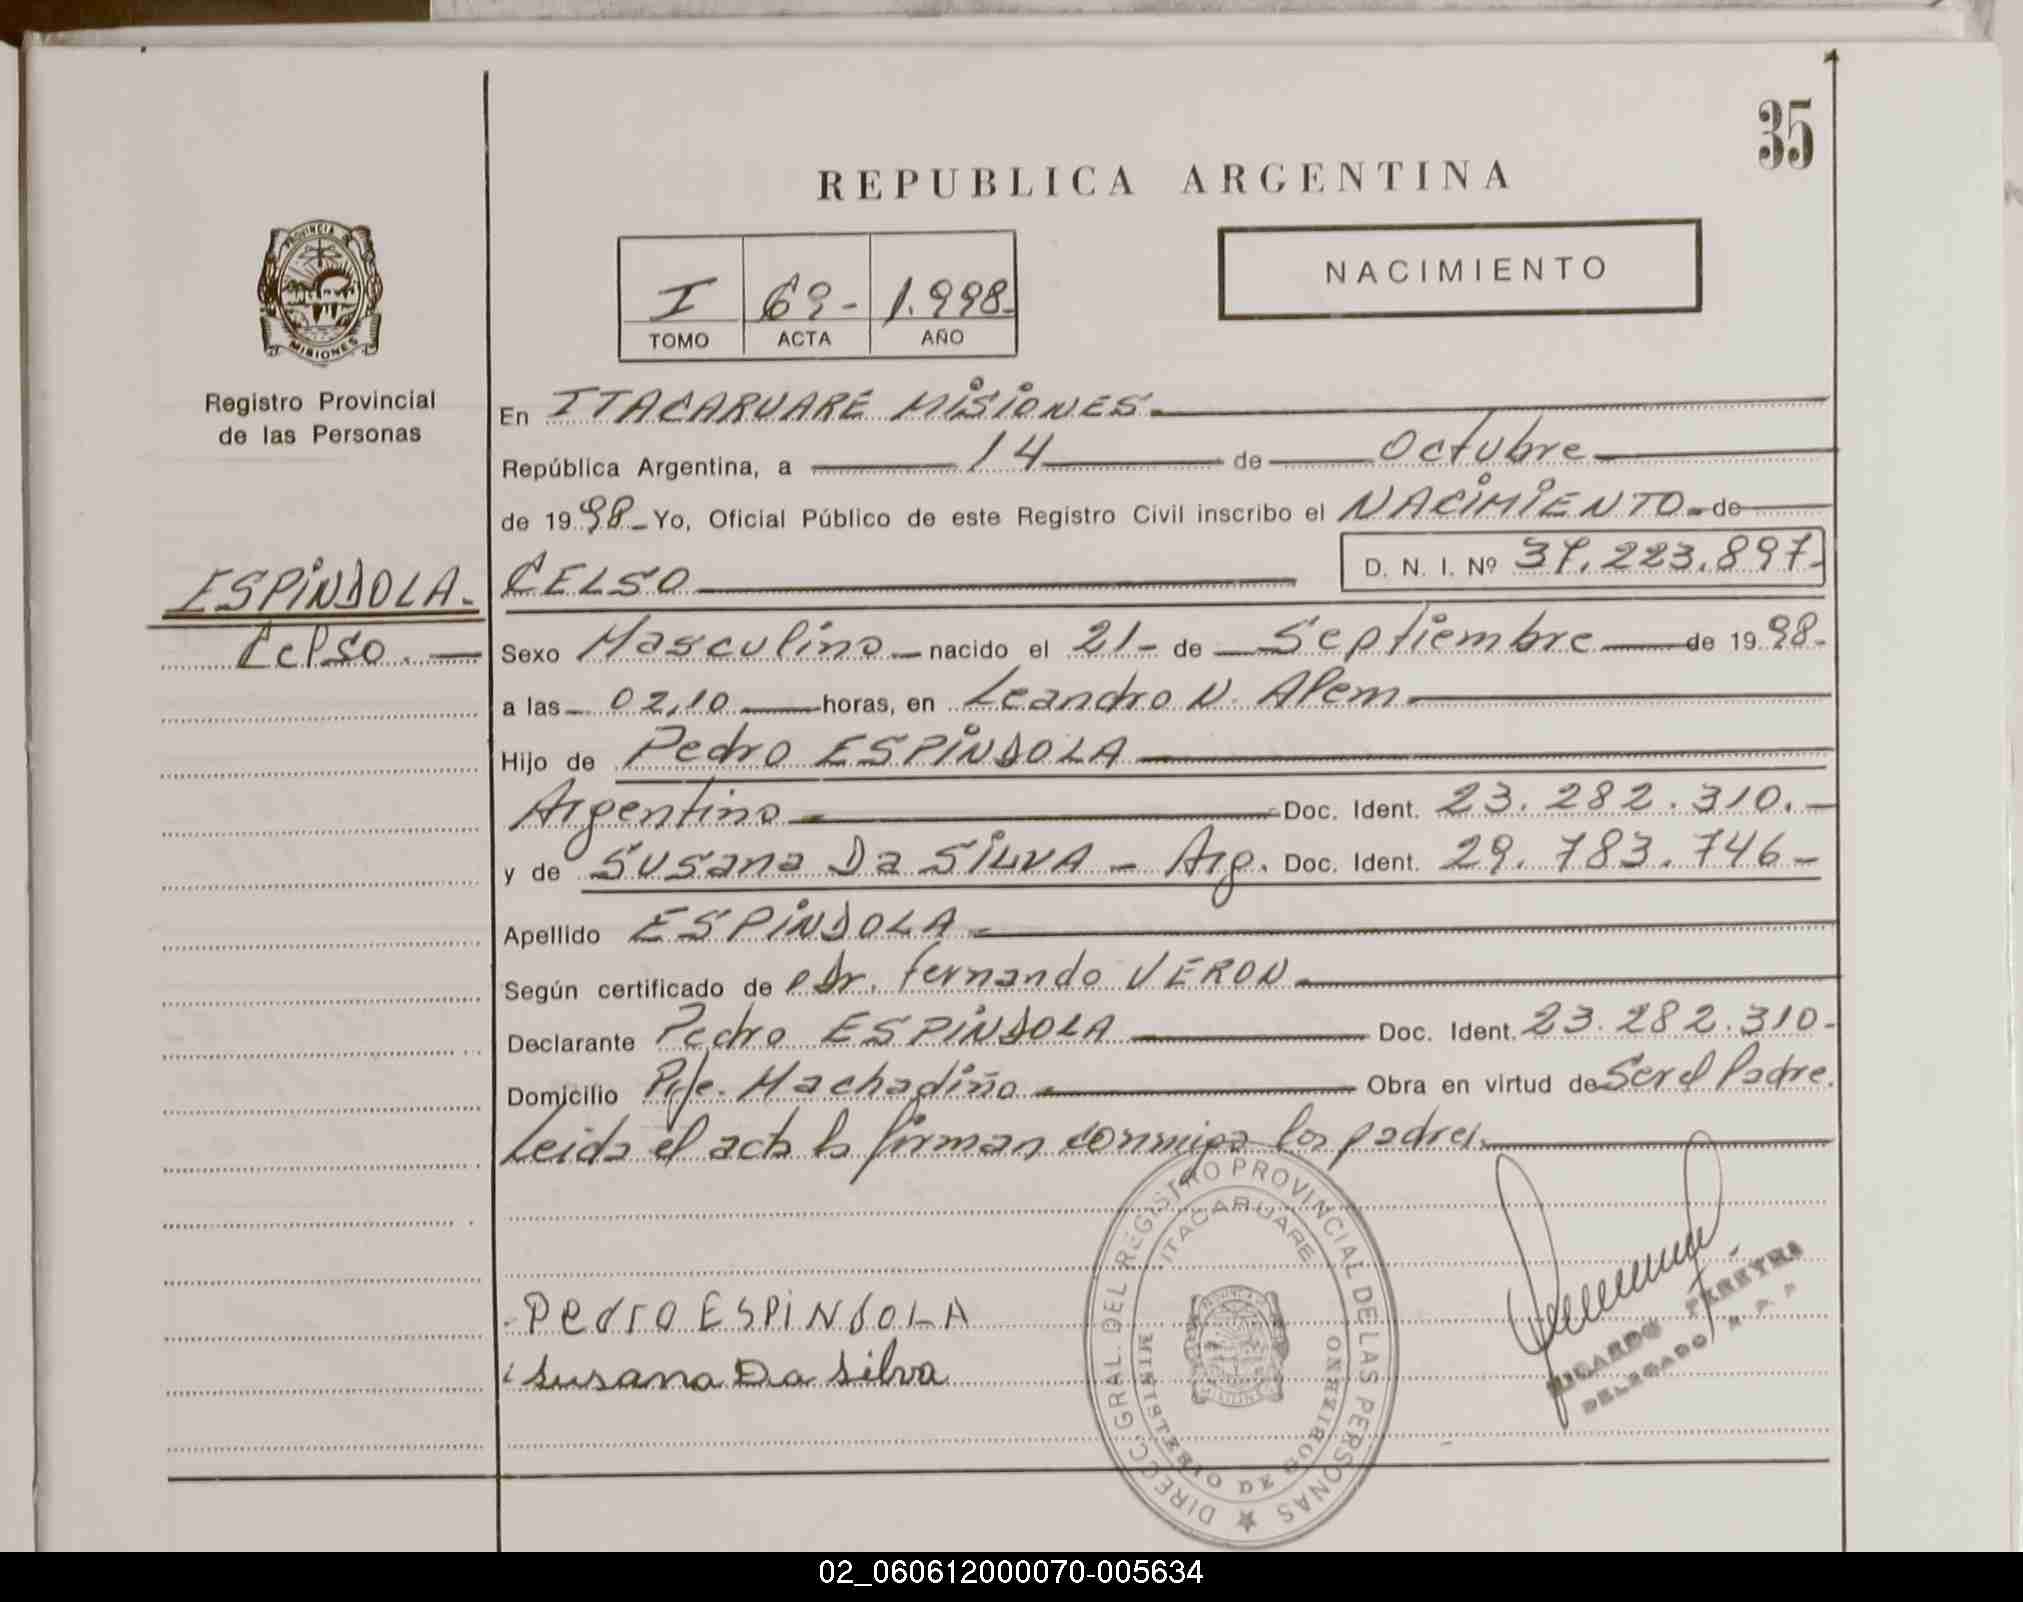 35
REPUBLICA ARGENTINA
PROVINCIA DE
MISIONES
Registro Provincial
de las Personas
I 69- 1.998-
TOMO ACTA AÑO
NACIMIENTO
En ITACARUARE MISIONES.
República Argentina, a 14 de Octubre
de 1998- Yo, Oficial Público de este Registro Civil inscribo el NACIMIENTO- de
ESPINDOLA-
Celso.
CELSO D. N. I. Nº 223.897-
Sexo Masculino nacido el 21- de Septiembre de 1998-
a las 02,10 horas, en Leandro N. Alem
Hijo de Pedro ESPINDOLA
Argentino Doc. Ident. 23.282.310.-
y de SUSana Da SILVA - Arg. Doc. Ident. 29.783.746-
Apellido ESPINDOLA-
Según certificado de Dr. Fernando VERON
Declarante Pedro ESPINDOLA Doc. Ident. 23.282.310-
Domicilio Pje. Machadiño Obra en virtud de Ser el Padre.
Leida el acta la firman conmigo los padres.
Pedro ESPINDOLA
Susana Da Silva
DIRECC. GRAL. DEL REGISTRO PROVINCIAL DE LAS PERSONAS
ITACARUARE
MINISTERIO DE GOBIERNO
RICARDO FEREYRA
DELEGADO R. P. P.
02_060612000070-005634